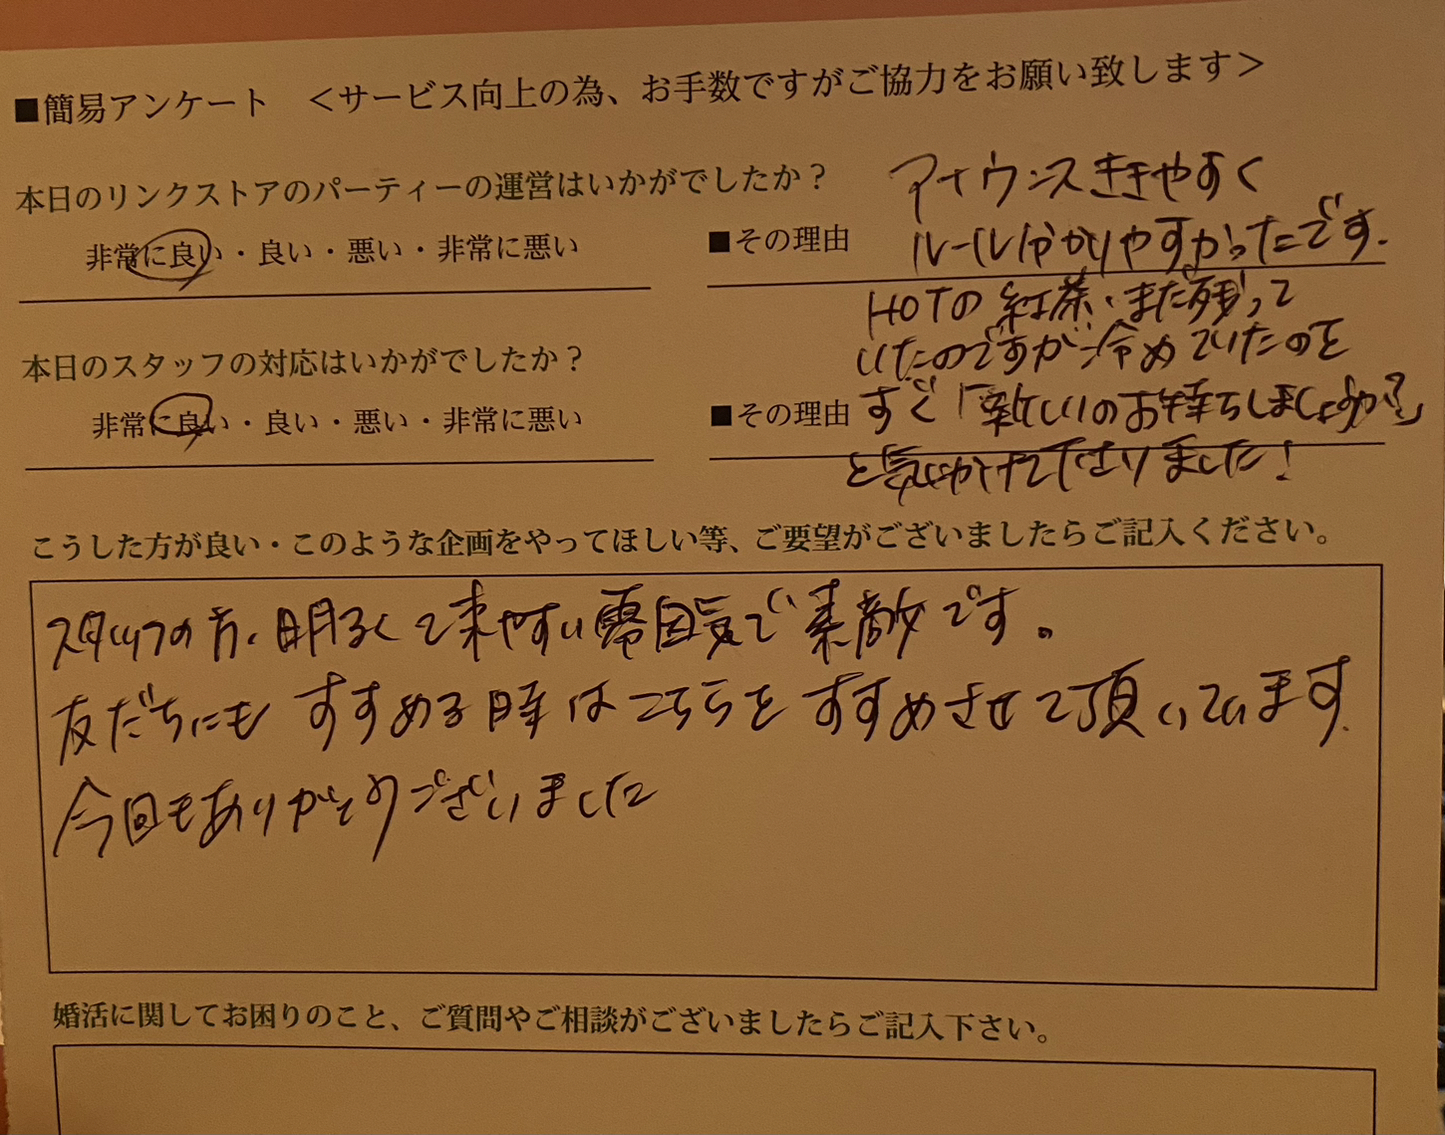 ■簡易アンケート <サービス向上の為、お手数ですがご協力をお願い致します>
本日のリンクストアのパーティーの運営はいかがでしたか?
非常に良い・良い・悪い・非常に悪い
■その理由
アナウンスききやすく
ルール分かりやすかったです.
本日のスタッフの対応はいかがでしたか?
非常に良い・良い・悪い・非常に悪い
■その理由
HOTの紅茶、まだ残って
いたのですが冷めていたのを
すぐ「新しいのお持ちしましょうか?」
と気にかけて下さりました!
こうした方が良い・このような企画をやってほしい等、ご要望がございましたらご記入ください。
スタッフの方、明るくて来やすい雰囲気で素敵です。
友だちにもすすめる時はこちらをすすめさせて頂いています.
今回もありがとうございました
婚活に関してお困りのこと、ご質問やご相談がございましたらご記入下さい。